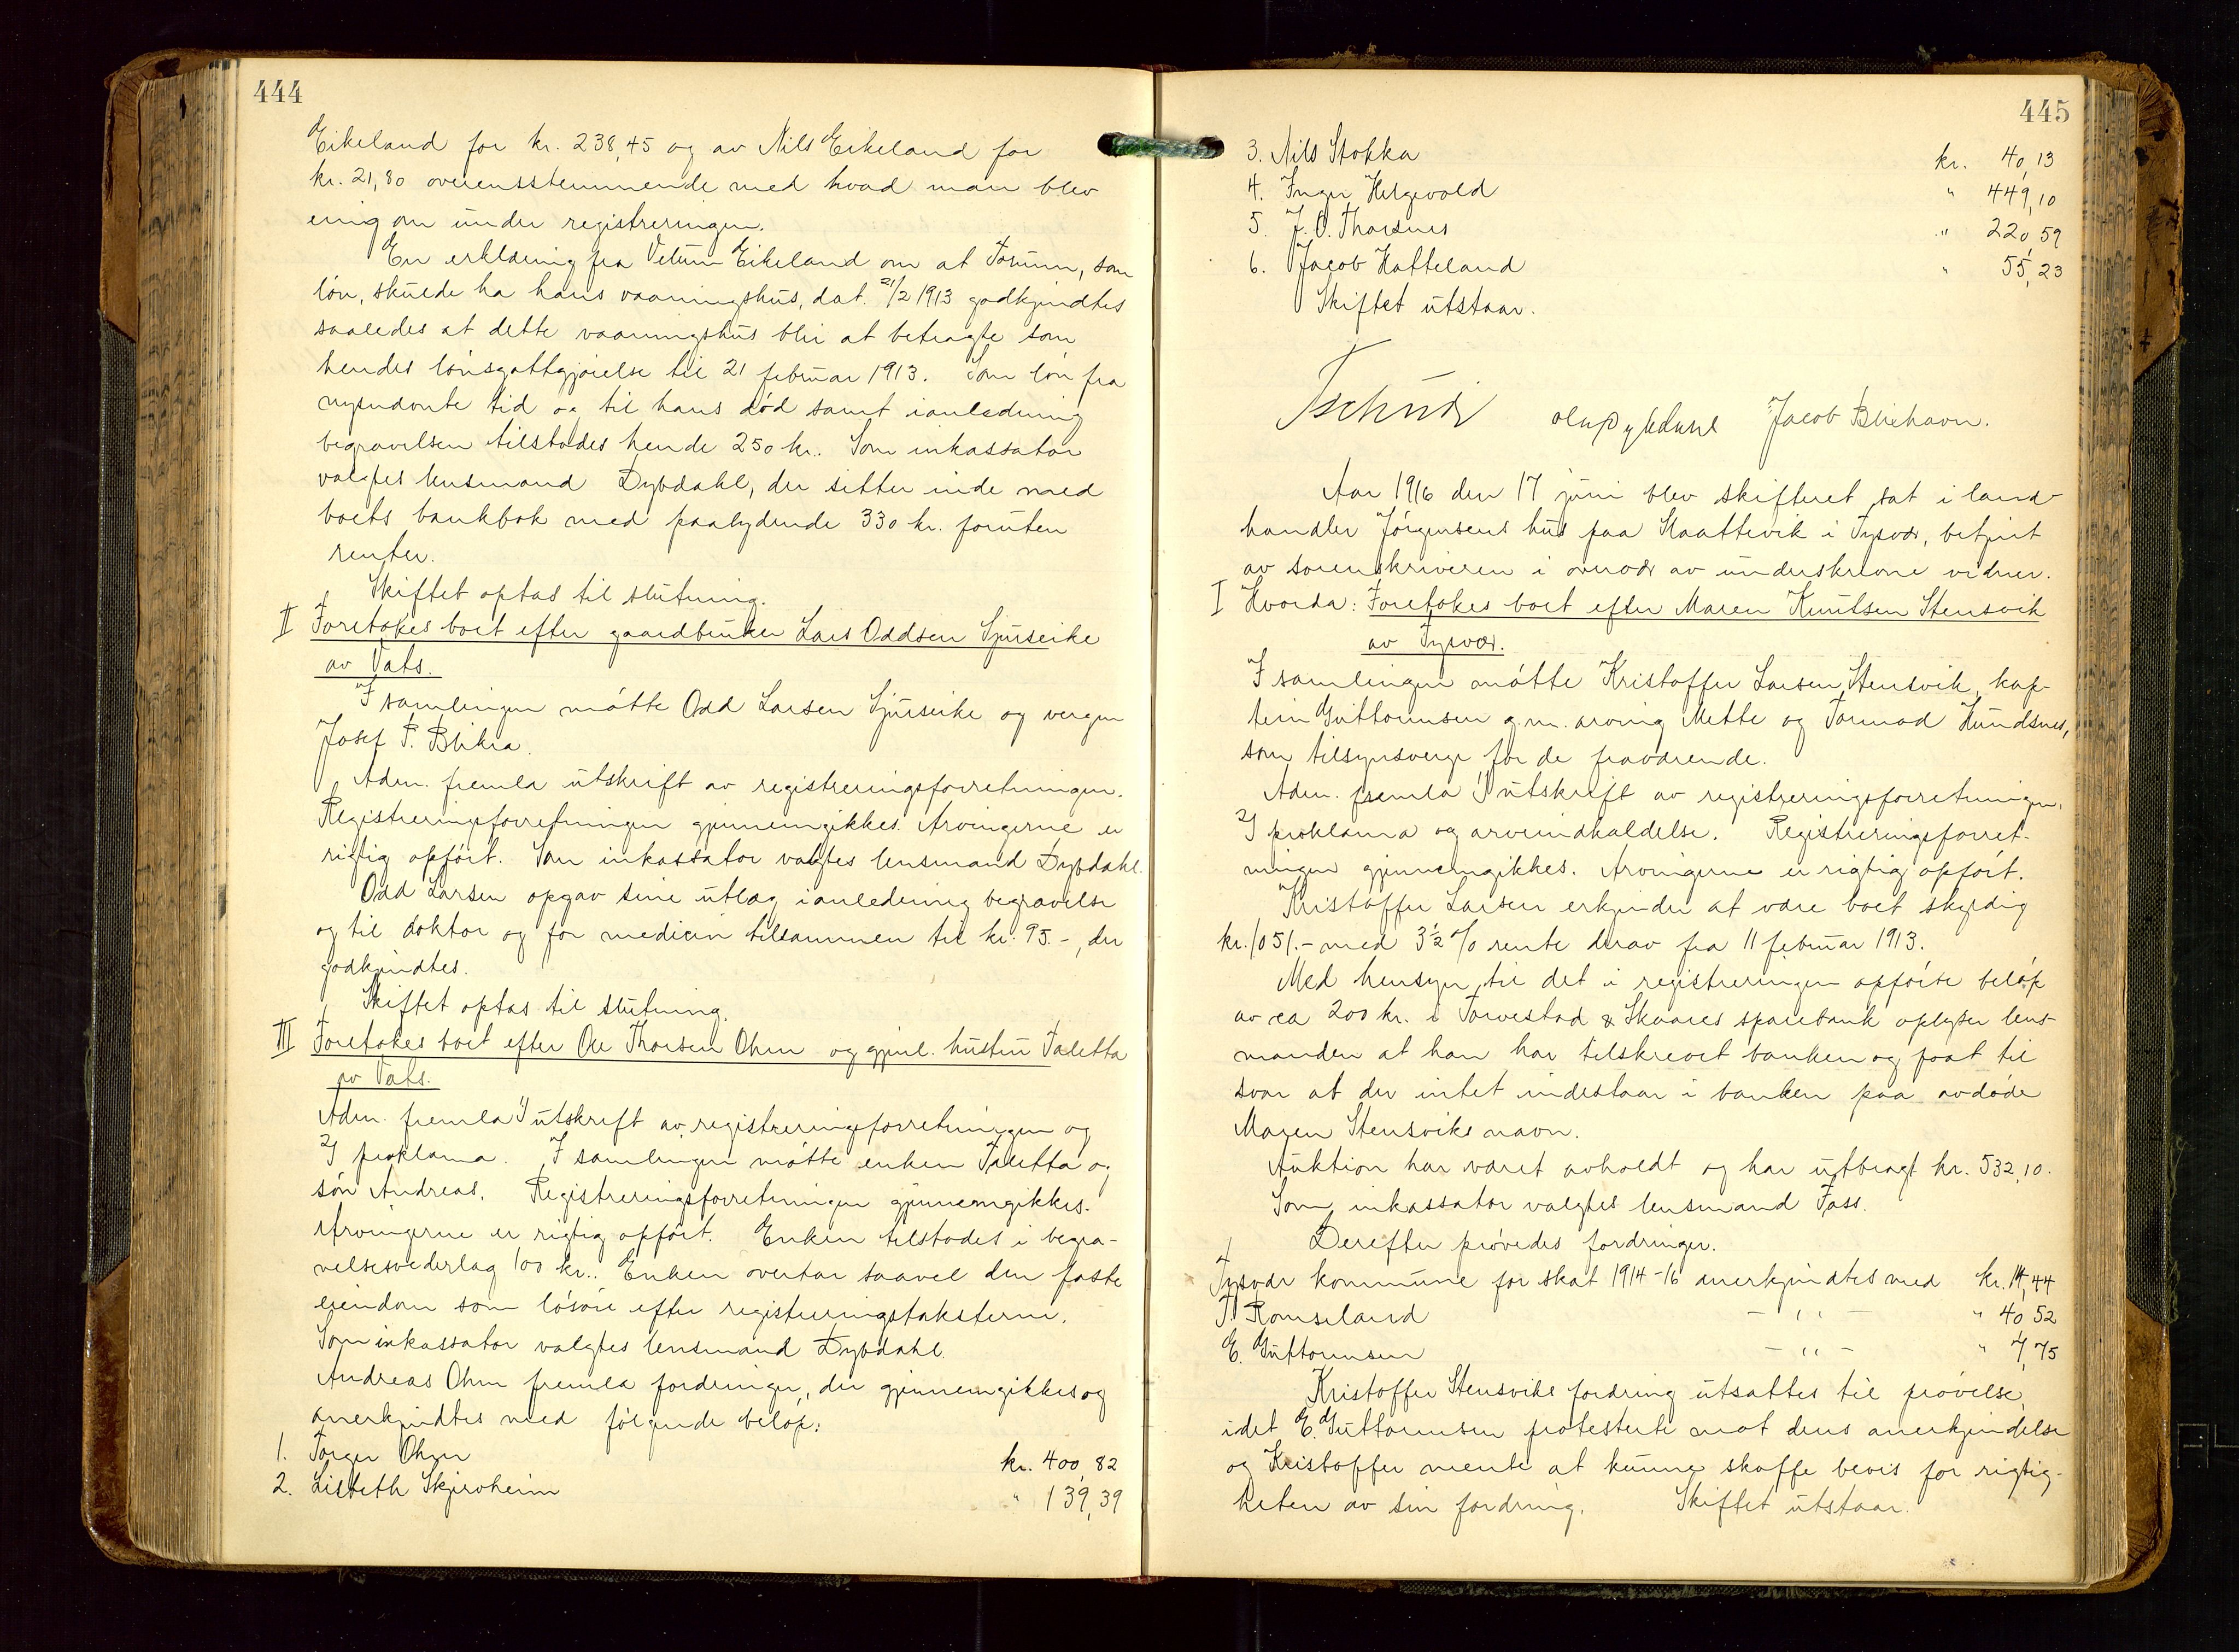 444
Eikeland for kr. 238,45 og av Nils Eikeland for
kr. 21,80 overensstemmende med hvad man blev
enig om under registreringen.
En erklæring fra Eikeland om at som
løn, skulde ha hans vaaningshus, dat. 21/2 1913 godkjendtes
saaledes at dette vaaningshus blir at betragte som
hendes lønsgottgjørelse til 21 februar 1913. Som løn fra
tid og til hans død samt i anledning
begravelsen tilstodes hende 250 kr.. Som inkassator
valgtes lensmand Dybdahl, der sitter inde med
boets bankbok med paalydende 330 kr. foruten
renter.
Skiftet optas til slutning.
II Foretokes boet efter gaardbruker Lars Oddsen Sjurseike
av Vats.
I samlingen møtte Odd Larsen Sjurseike og vergen
Josef P. Blikra.
Adm. fremla utskrift av registreringsforretningen.
Registreringsforretningen gjennemgikkes. Arvingerne er
rigtig opført. Som inkassator valgtes lensmand Dybdahl.
Odd Larsen opgav sine utlæg i anledning begravelse
og til doktor og for medicin tilsammen til kr. 95.-, der
godkjendtes.
Skiftet optas til slutning.
III Foretokes boet efter Ole Thorsen Ohm og gjenl. hustru Taletta
av Vats.
Adm. fremla 1) utskrift av registreringsforretningen og
2) proklama. I samlingen møtte enken Taletta og
søn Andreas. Registreringsforretningen gjennemgikkes.
Arvingerne er rigtig opført. Enken tilstodes i begra-
velsesvederlag 100 kr.. Enken overtar saavel den faste
eiendom som løsøre efter registreringstaksterne.
Som inkassator valgtes lensmand Dybdahl.
Andreas Ohm fremla fordringer, der gjennemgikkes og
anerkjendtes med følgende beløp:
1. Torger Ohm kr. 400,82
2. Lisbeth Skjervheim " 139,39
445
3. Nils Stokka kr. 40,13
4. Inger Helgevold " 449,10
5. J. O. Thorsnes " 220,59
6. Jacob Hatteland " 55,23
Skiftet utstaar.
Tschudi Jacob Bliehavn.
Aar 1916 den 17 juni blev skifteret sat i land-
handler Jørgensens hus paa Slaattevik i Tysvær, betjent
av sorenskriveren i overvær av underskrevne vidner.
I Hvorda: Foretokes boet efter Maren Knutsen Stensvik
av Tysvær.
I samlingen møtte Kristoffer Larsen Stensvik, kap-
tein Guttormsen g.m. arving Mette og Tormod Hundsnes,
som tilsynsverge for de fraværende.
Adm. fremla 1) utskrift av registreringsforretningen,
2) proklama og arveindkaldelse. Registreringsforret-
ningen gjennemgikkes. Arvingerne er rigtig opført.
Kristoffer Larsen erkjender at være boet skyldig
kr. 1051.- med 3½ % rente derav fra 11 februar 1913.
Med hensyn til det i registreringen opførte beløp
av ca 200 kr. i Torvestad & Skaares sparebank oplyser lens-
manden at han har tilskrevet banken og faat til
svar at der intet indestaar i banken paa avdøde
Maren Stensviks navn.
Auktion har været avholdt og har utbragt kr. 532,10.
Som inkassator valgtes lensmand Fass.
Derefter prøvedes fordringer.
Tysvær kommune for skat 1914-16 anerkjendtes med kr. 14,44
T. Romseland — " — " 40,52
E. Guttormsen — " — " 7,75
Kristoffer Stensviks fordring utsattes til prøvelse,
idet E. Guttormsen protesterte mot dens anerkjendelse
og Kristoffer mente at kunne skaffe bevis for rigtig-
heten av sin fordring. Skiftet utstaar.